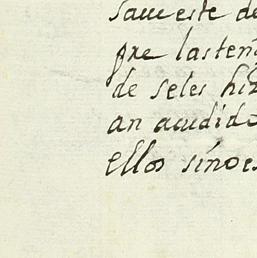 este de
gre las ten
de seles hiz
an acudido
ellos sinoes